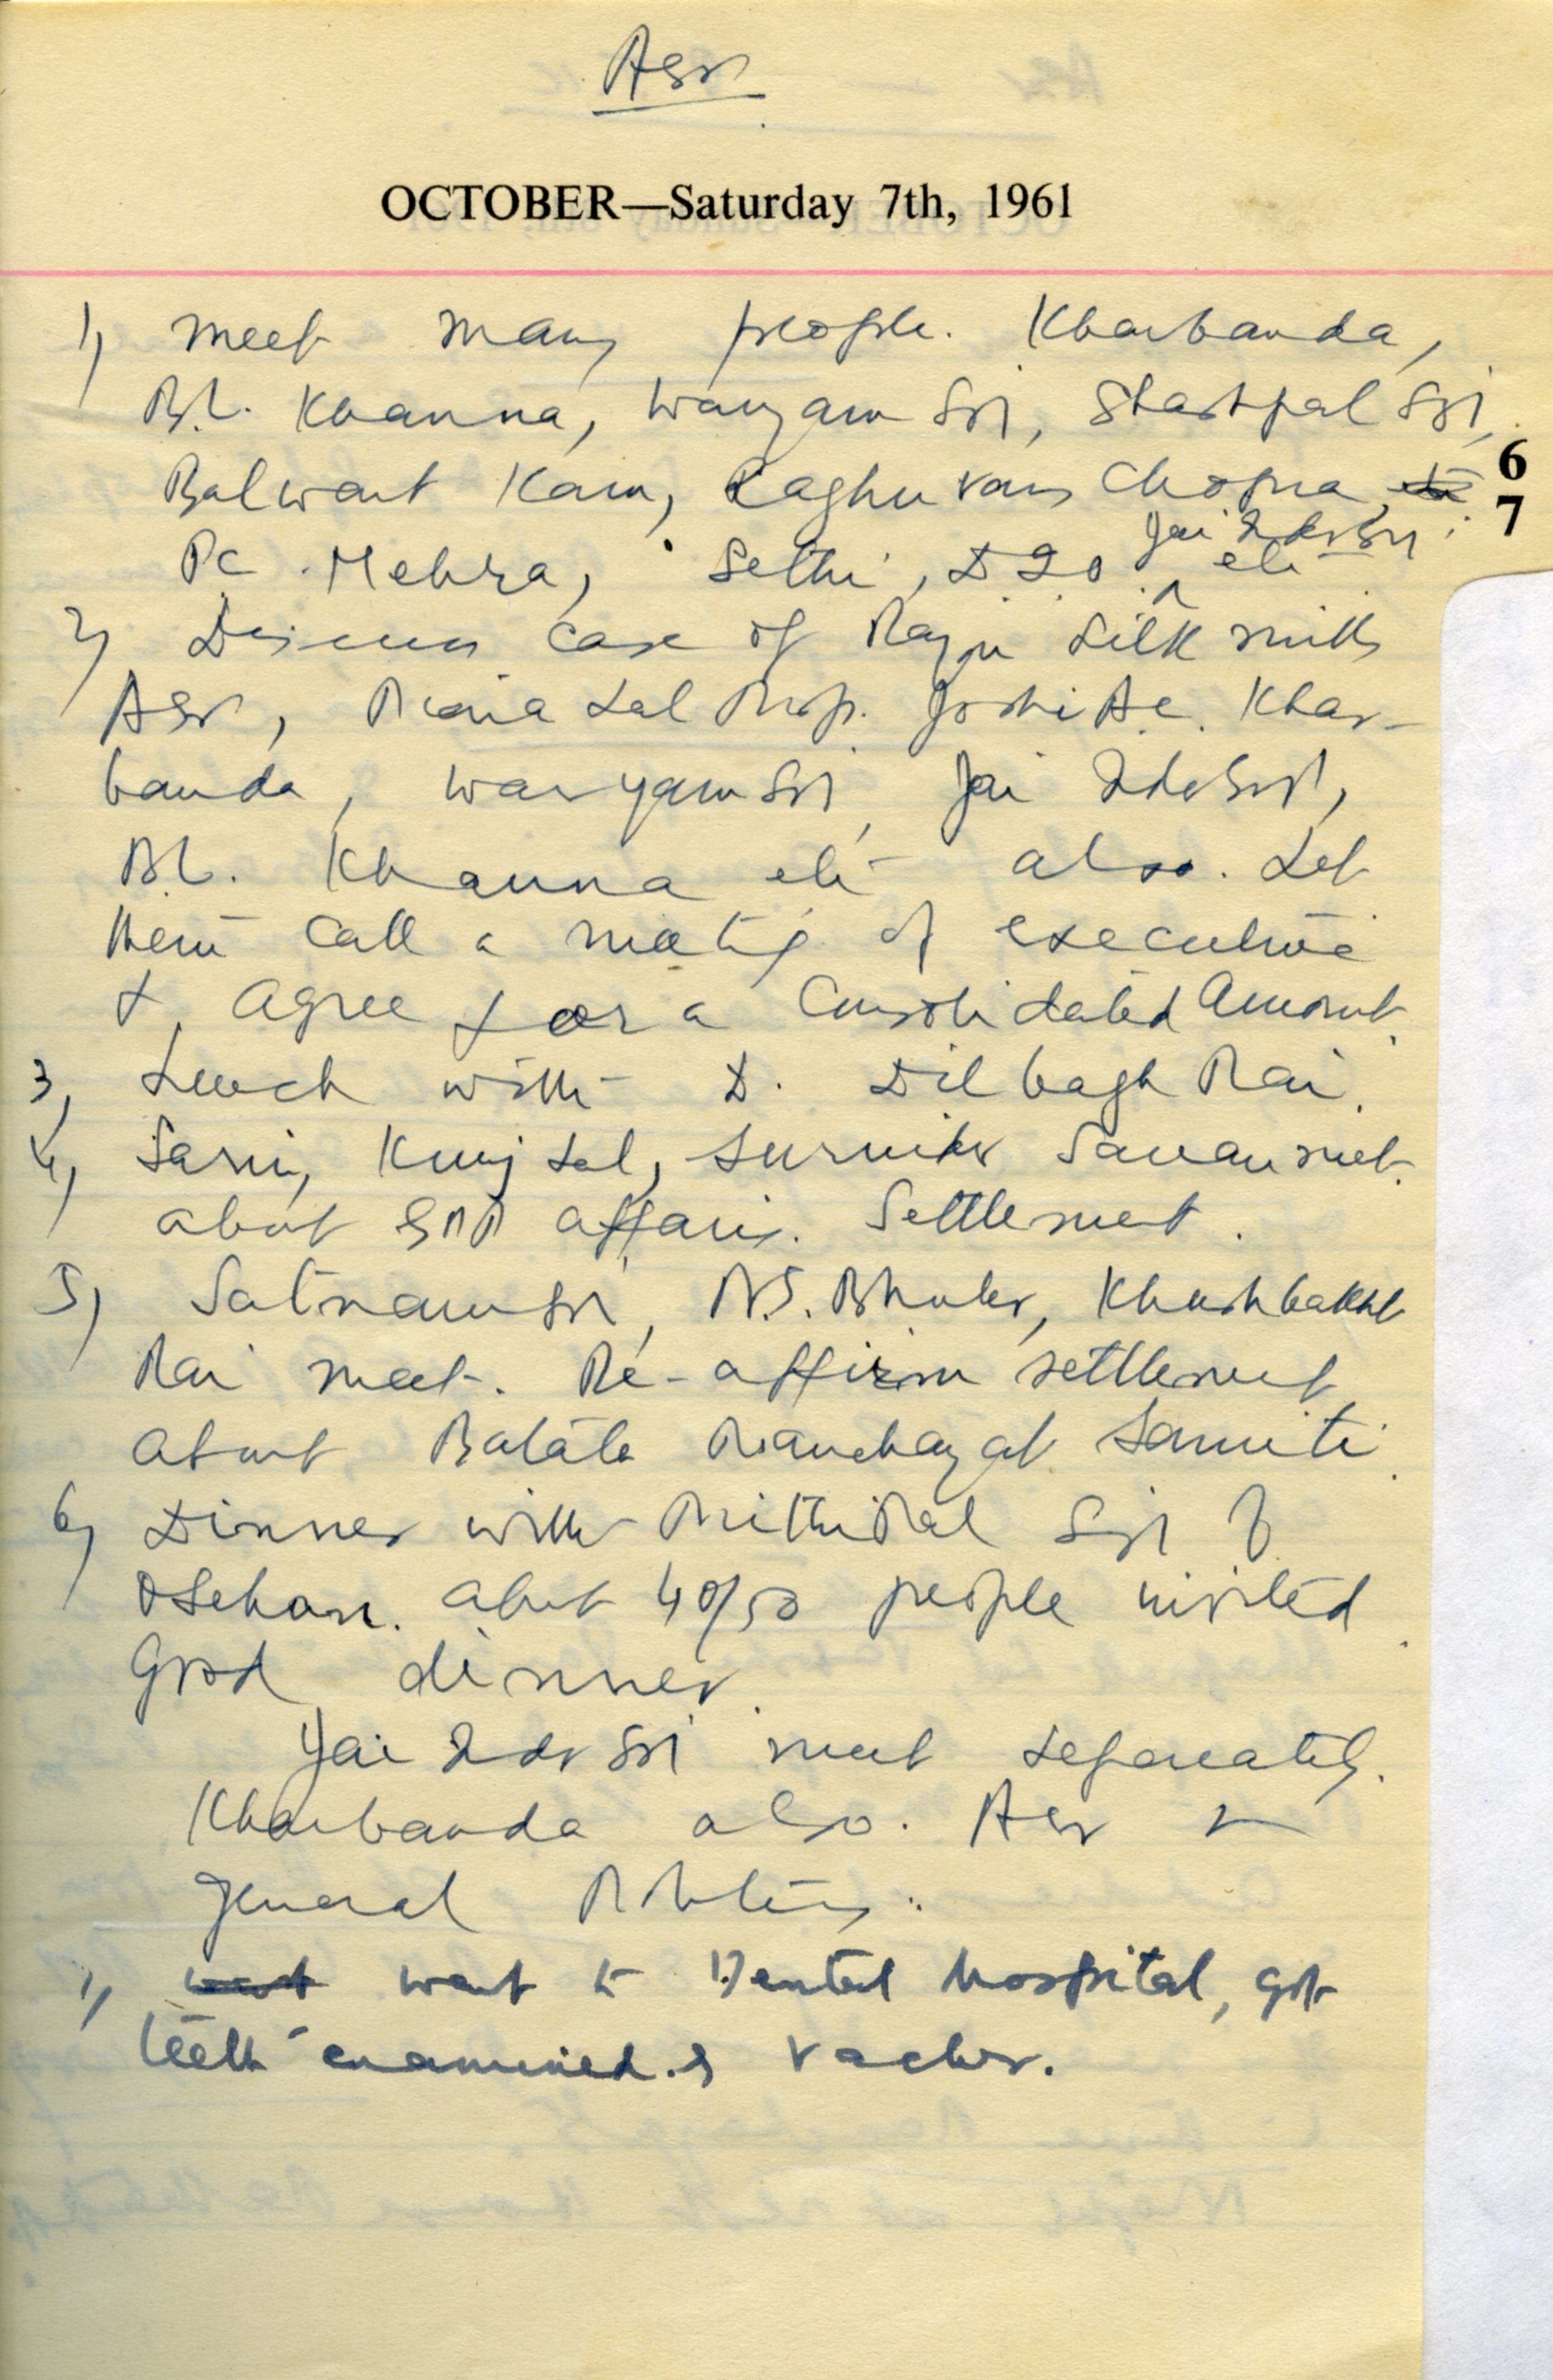 Asr
OCTOBER—Saturday 7th, 1961
1) meet many people. Kharbanda,
B.L. Khanna, Waryam Sri, Shashpal Sri,
Balwant Kaur, Raghu vans Chopra
6
7
P.C. Mehra, Sethi, D I O Jai Inder Sri etc
2) Discuss case of Raju Silk mills
Asr, Piara Lal Prop. Joshi Ae. Khar-
banda, Waryam Sri, Jai Inder Sri,
B.L. Khanna etc also. Let
them call a meeting of executive
& agree for a consolidated amount.
3) Lunch with D. Dilbagh Rai.
4) Sarin, Kunj Lal, Surinder met.
about affairs. Settlement.
5) Satnam Sri, Khushbakht
Rai meet. Re-affirm settlement
about Batala Panchayat Samiti.
6) Dinner with Prithipal Sri of
about 40/50 people invited.
Good dinner.
Jai Inder Sri meet separately.
Kharbanda also. Asr &
general Politics.
7) went to Dental hospital, got
teeth examined &